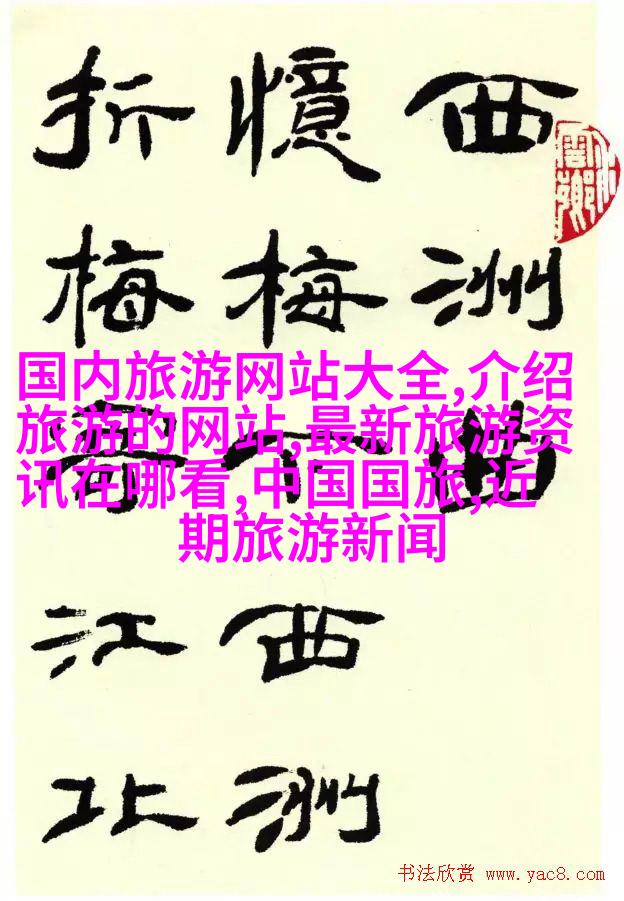 西洲曲
憶梅下西洲
折梅寄江北
国内旅游网站大全,介绍
旅游的网站,最新旅游资
讯在哪看,中国国旅,近
期旅游新闻
书法欣赏 www.yac8.com